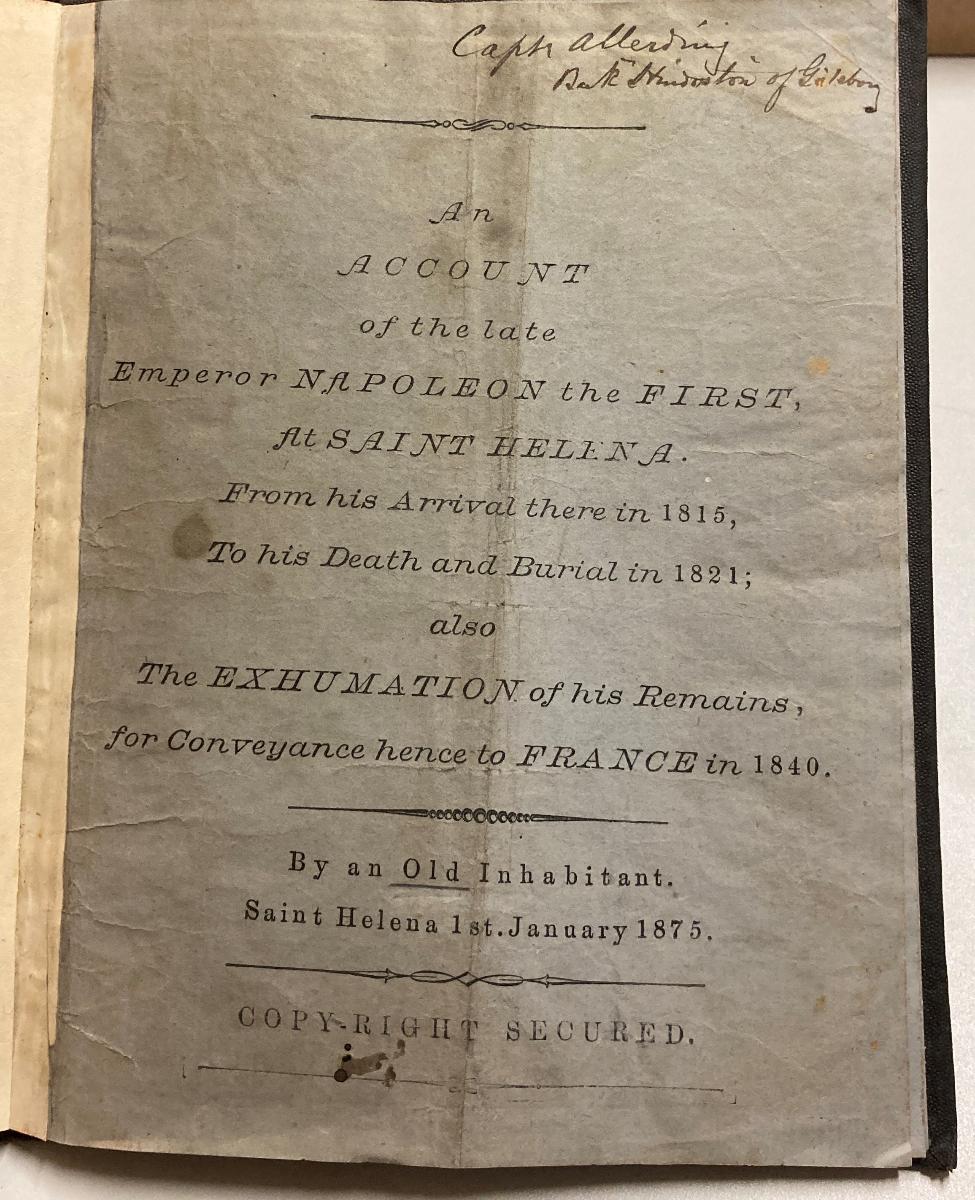 Capt Allerding
Bark Hindostan of Göteborg
An
ACCOUNT
of the late
Emperor NAPOLEON the FIRST,
At SAINT HELENA.
From his Arrival there in 1815,
To his Death and Burial in 1821;
also
The EXHUMATION of his Remains,
for Conveyance hence to FRANCE in 1840.
By an Old Inhabitant.
Saint Helena 1st. January 1875.
COPY-RIGHT SECURED.